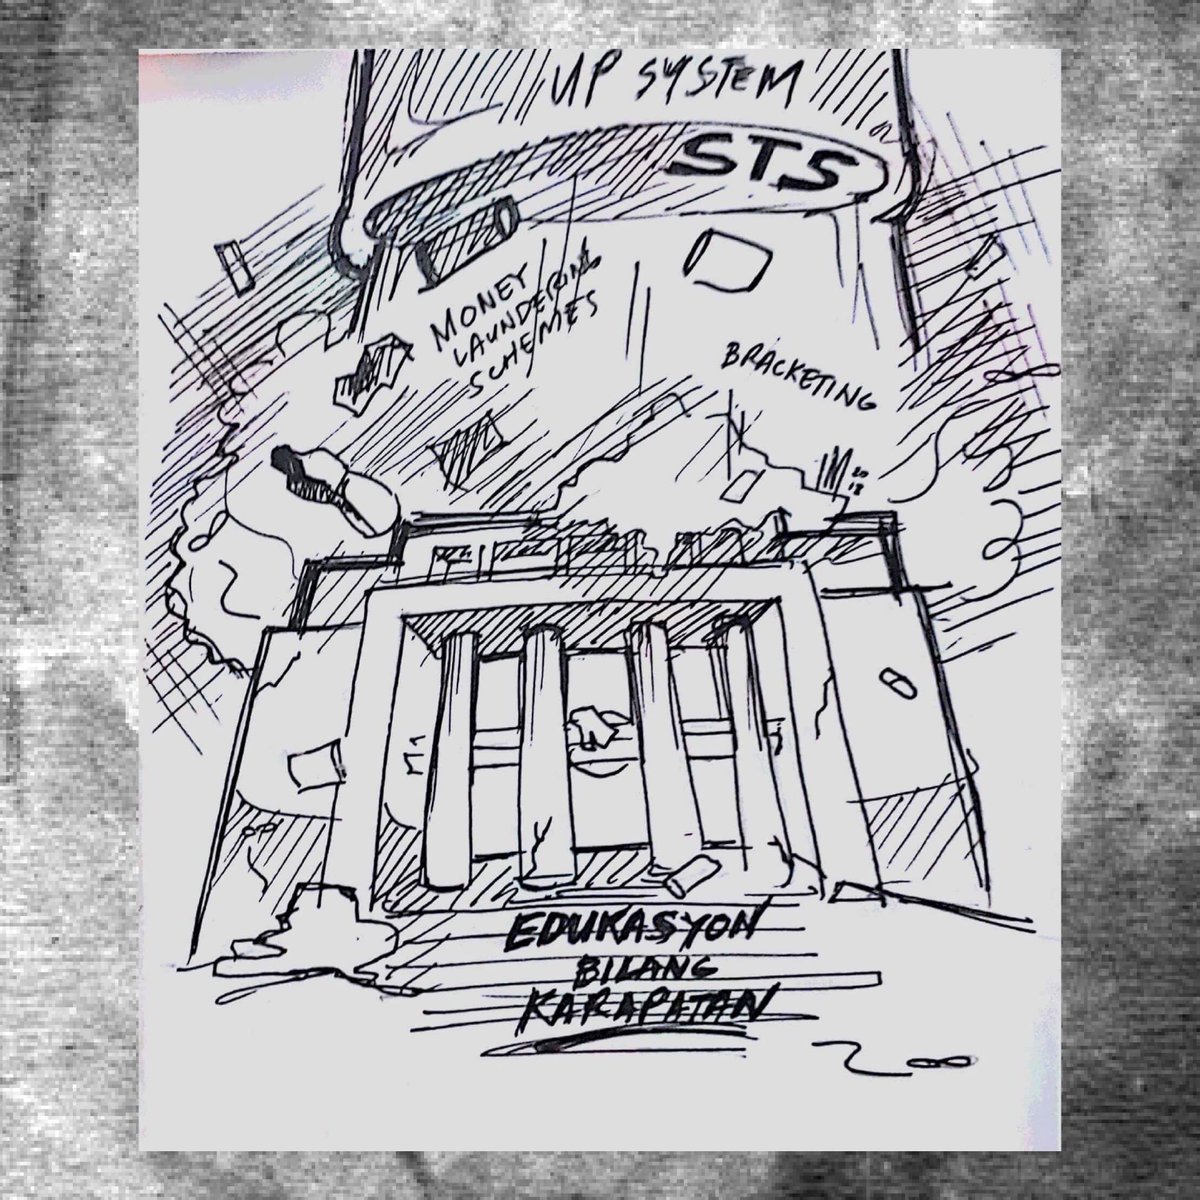 UP SYSTEM
STS
MONEY
LAUNDERING
SCHEMES
BRACKETING
20
18
EDUKASYON
BILANG
KARAPATAN